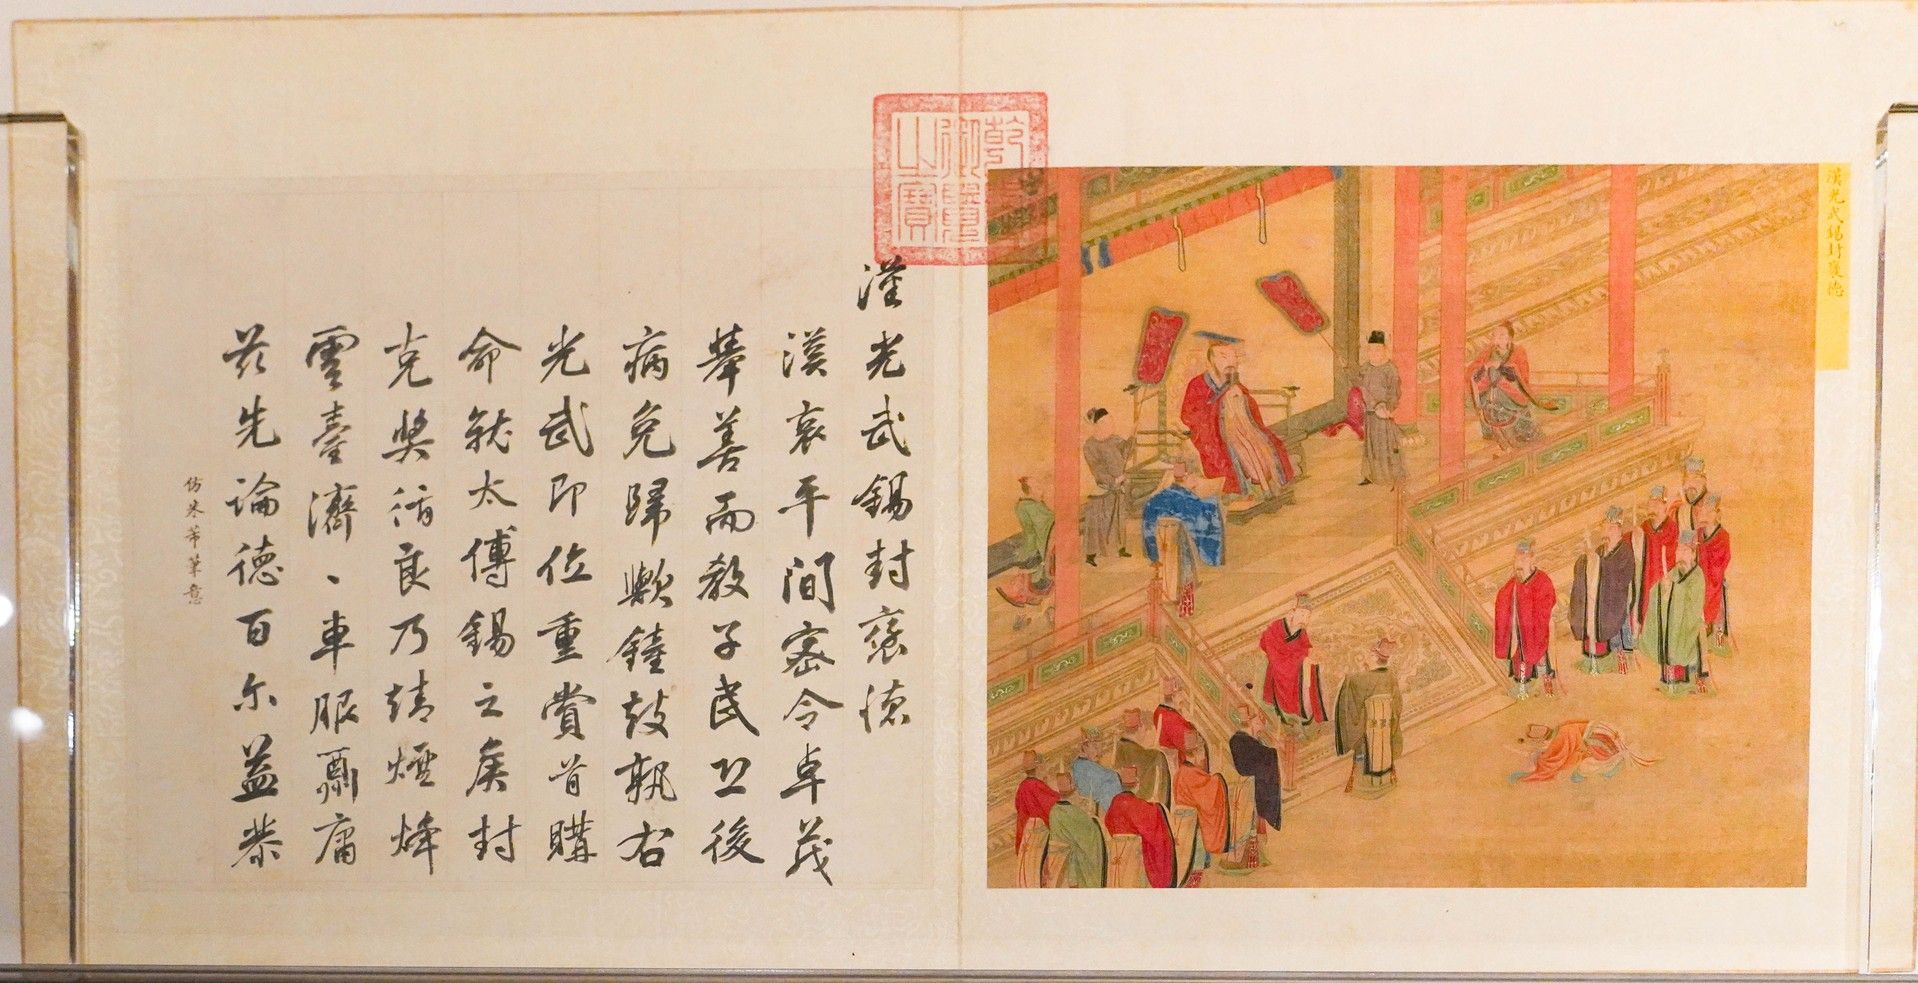 漢光武錫封褒德
乾隆
御覽
之寶
漢光武錫封褒德
漢哀平間密令卓茂
舉善而教子民後
病免歸歟鐘鼓孰右
光武即位重賞首購
命就太傅錫之矦封
克奬循良乃靖煙烽
雲臺濟、車服酬庸
茲先論德百尔益恭
仿米芾筆意